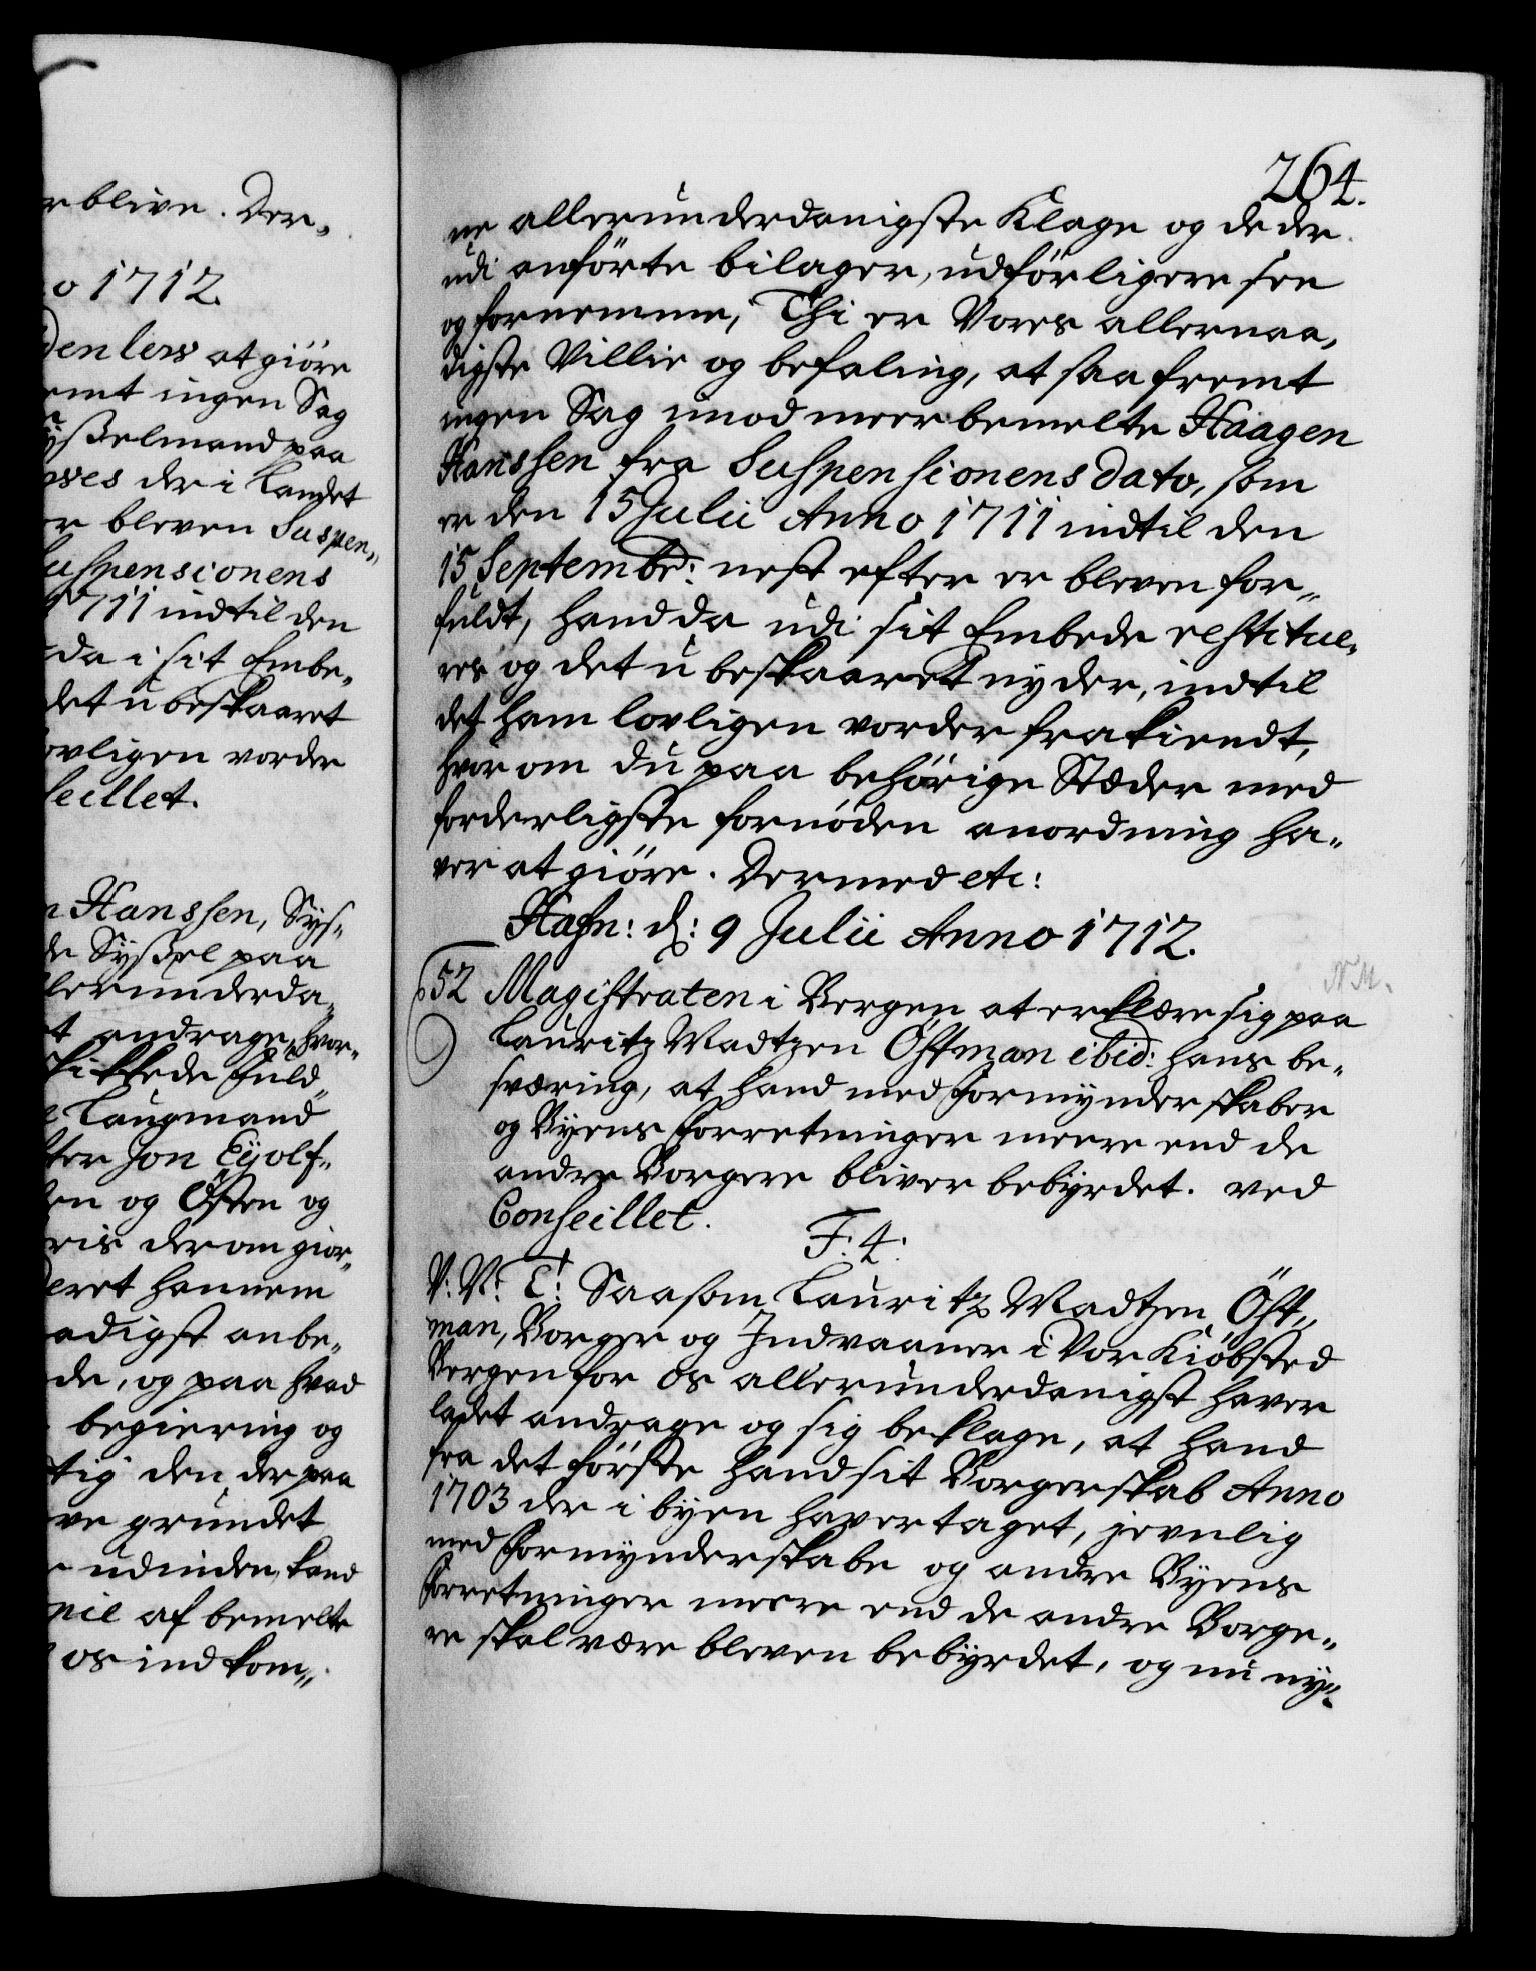 rblive. Der„
o 1712.
Denlew at giöre
emt ingen Sag
ÿsselmand paa
der i Landet
er bleven Suspen„
Suspensionens
1711 indtil den
da i sit Embe„
det ubeskaaret
ovligen vorder
seillet.
n Hanssen, Sÿs„
de Sÿssel paa
lerunderda„
t andrage, hvor„
skikkede Fuld„
e Laugmand
ter Jon Eÿolf„
en og Östen og
ris derom gior„
eret hannem
adigst anbe„
de, og paa hvad
begiering og
tig den der paa
ve grundet
udinden kand
pie af bemelte
os indkom„
264.
ne allerunderdanigste Klage og de der
udi anförte bilager, udförligere see
og fornemme, Thi er Vores allernaa„
digste Villie og befaling, at saa fremt
ingen Sag imod meerbemelte Haagen
Hanssen fra Suspensionens dato, som
er den 15 Julii Anno 1711 indtil den
15 Septembr: nest efter er bleven for„
fuldt, hand da udi sit Embede restitue„
res og det ubeskaaret nyder, indtil
det ham lovligen vorder frakiendt,
hvor om du paa behörige Stæder med
forderligste fornöden anordning ha„
ver at giöre. Dermed etc:
Hafn: d: 9 Julii Anno 1712.
N M.
52 Magistraten i Bergen at erklære sig paa
Lauritz Madtzen Östman ibid: hans be„
sværing, at hand med Formynderskaber
og Byens Forretninger meere end de
andre Borgere bliver bebyrdet. ved
Conseillet.
F: 4:
V: V: T: Saasom Lauritz Madtzen Öst„
man, Borger og Indvaaner i Vor Kiöbsted
Bergen for Os allerunderdanigst haver
ladet andrage og sig beklage, at hand
fra det förste hand sit Borgerskab Anno
1703 der i byen haver taget, jevnlig
med Formynderskabe og andre Byens
Forretninger meere end de andre Borge„
re skal være bleven bebyrdet, og nu ny„